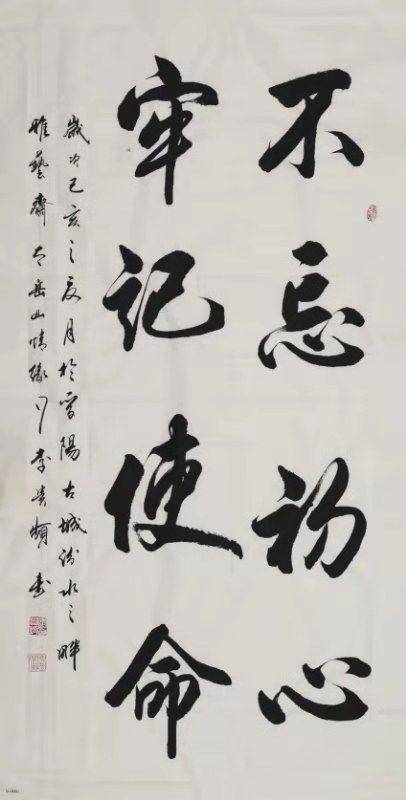 不忘初心
牢记使命
歲次己亥之夏月於晉陽古城汾水之畔
雅藝齋太岳山情缘人李貴
書